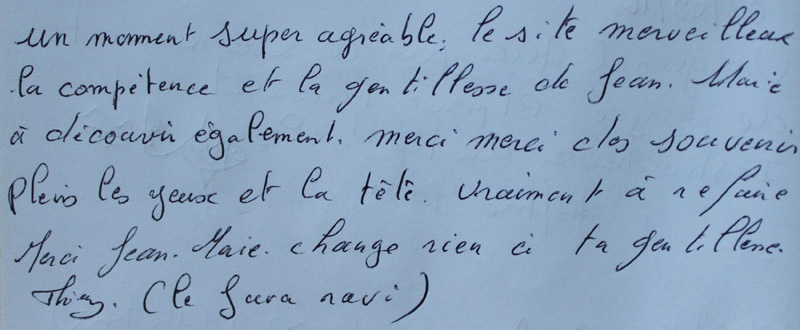 un moment super agréable, le site merveilleux
la compétence et la gentillesse de Jean-Marie
à découvrir également. merci merci des souvenirs
pleins les yeux et la tête. vraiment à refaire
Merci Jean-Marie. change rien à ta gentillesse.
Thierry. (le Jura ravi)